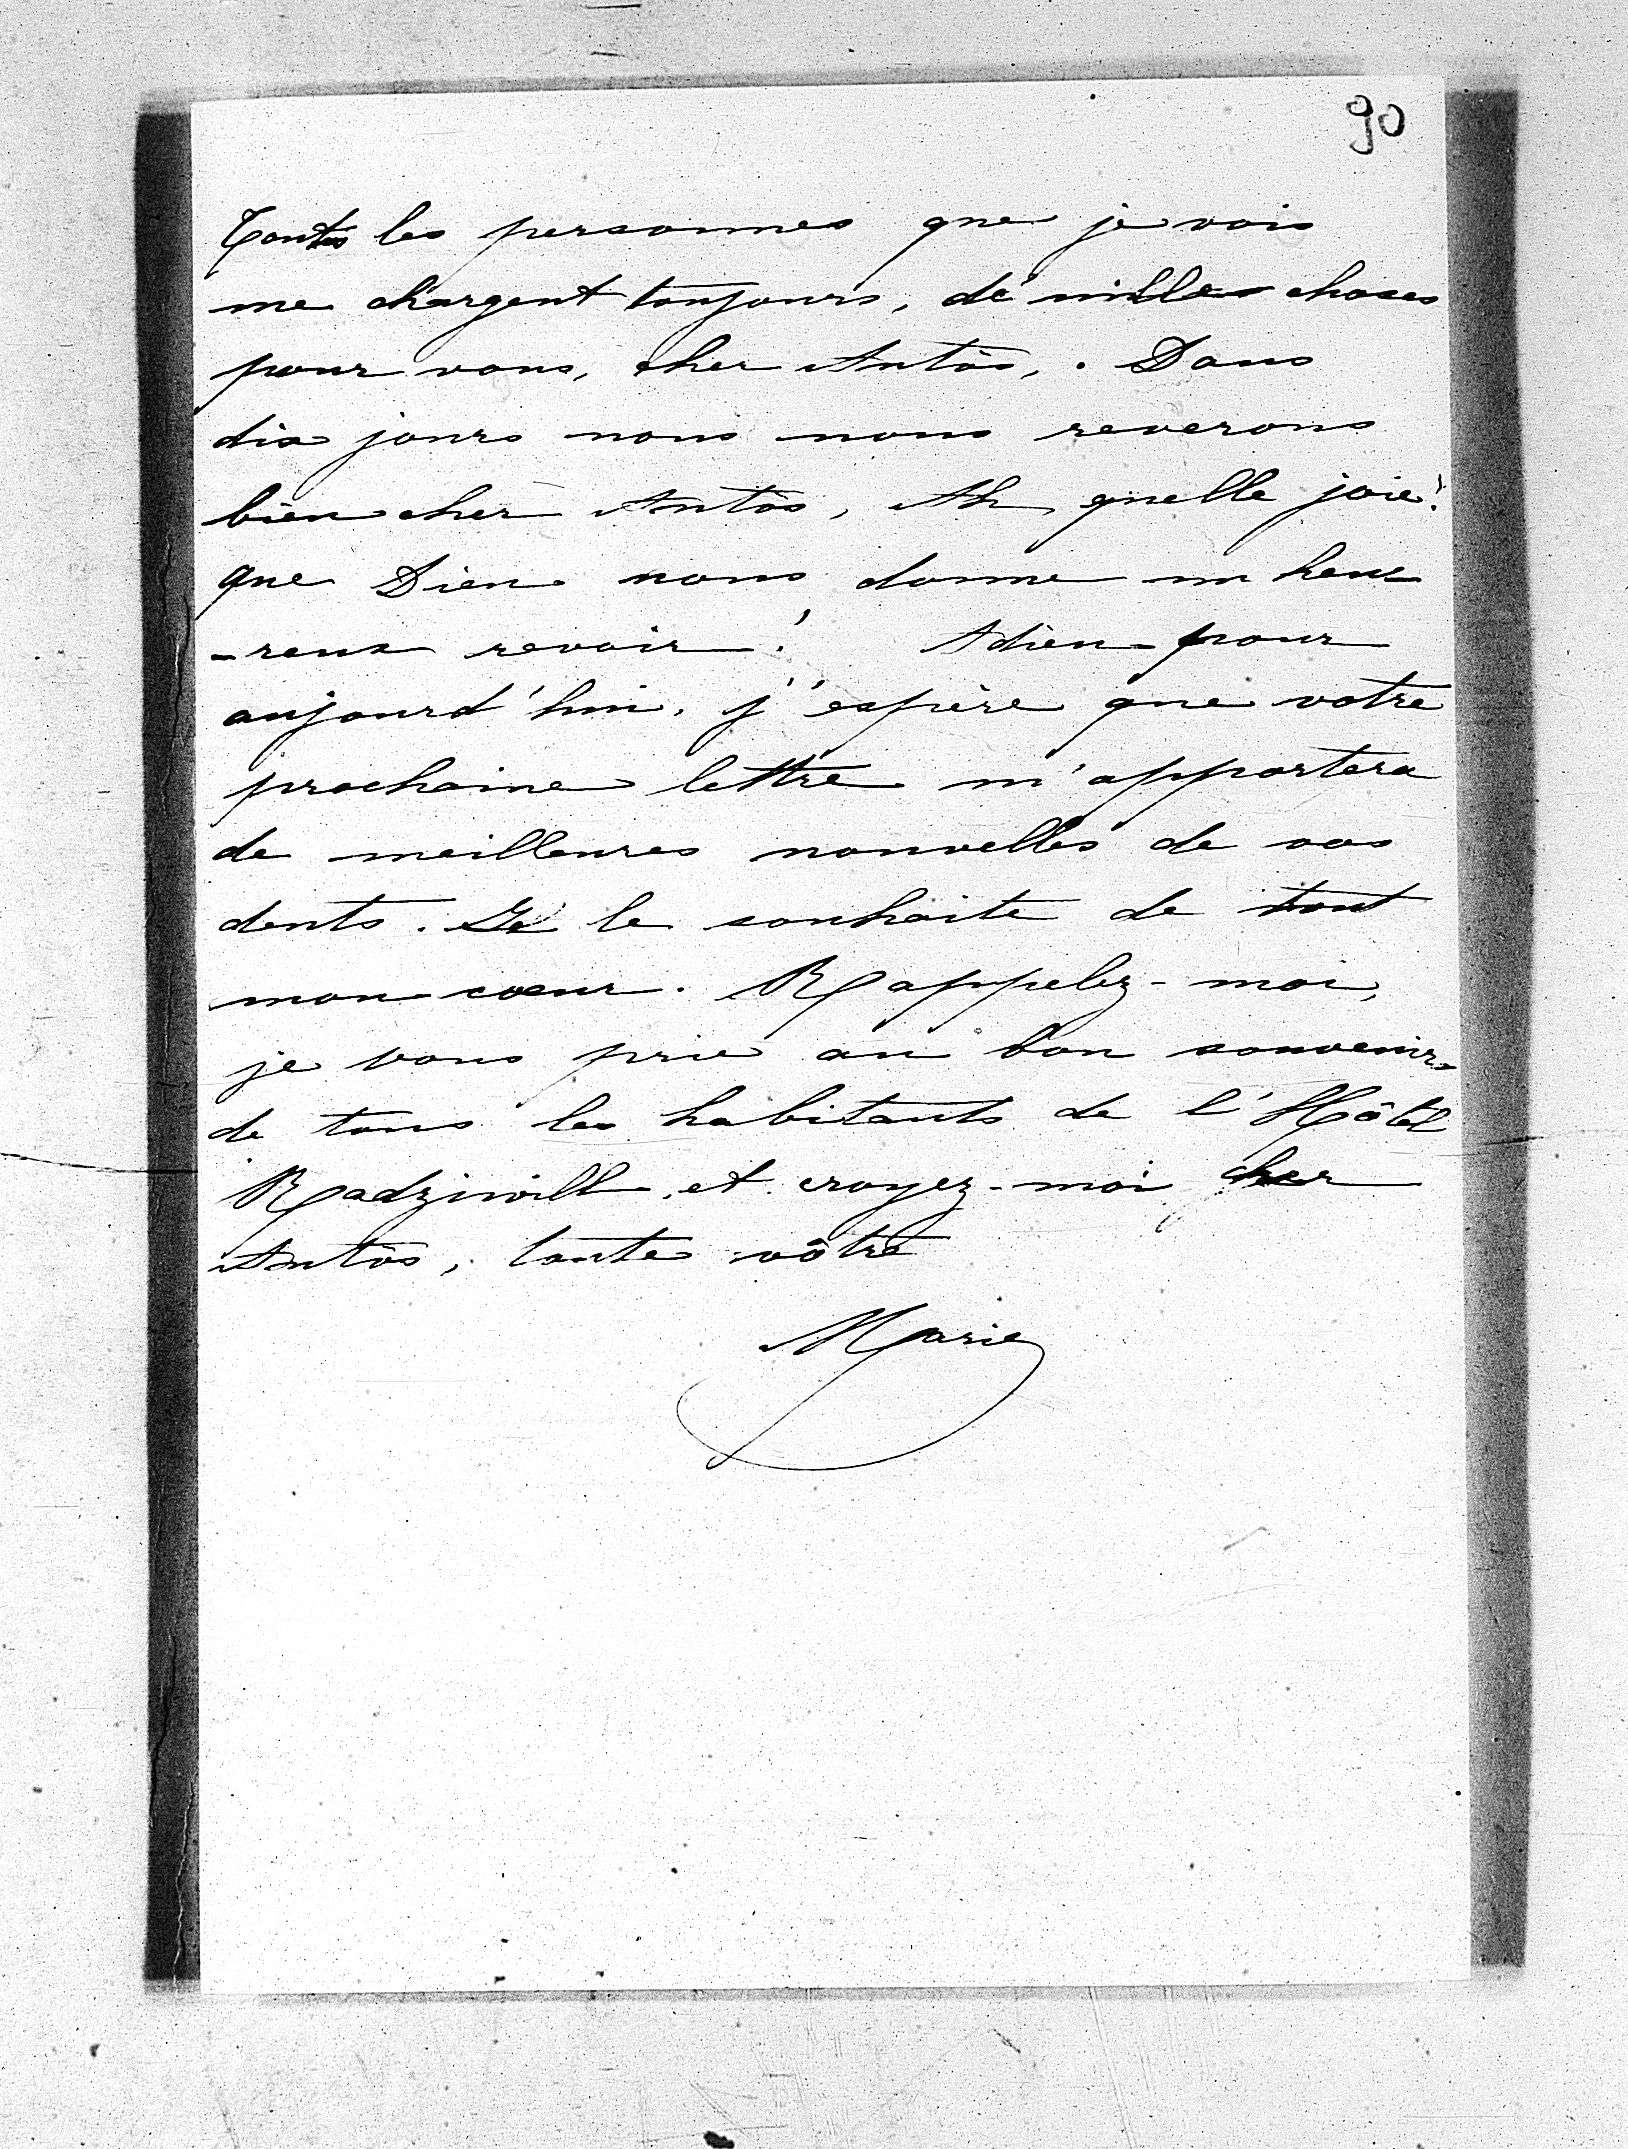 90
Toutes les personnes que je vois
me chargent toujours, de milles choses
pour vous, cher Antôs, . Dans
dix jours nous nous reverons
bien cher Antôs, Ah, quelle joie!
que Dieu nous donne un heu
-reux revoir! Adieu pour
aujourd'hui, j'espère que votre
prochaine lettre m'apportera
de meilleures nouvelles de vos
dents. Je le souhaite de tout
mon coeur. Rappelez-moi,
je vous prie au bon souvenir
de tous les habitants de l'Hôtel
Radziwill, et croyez-moi cher
Antôs, toute vôtre
Marie